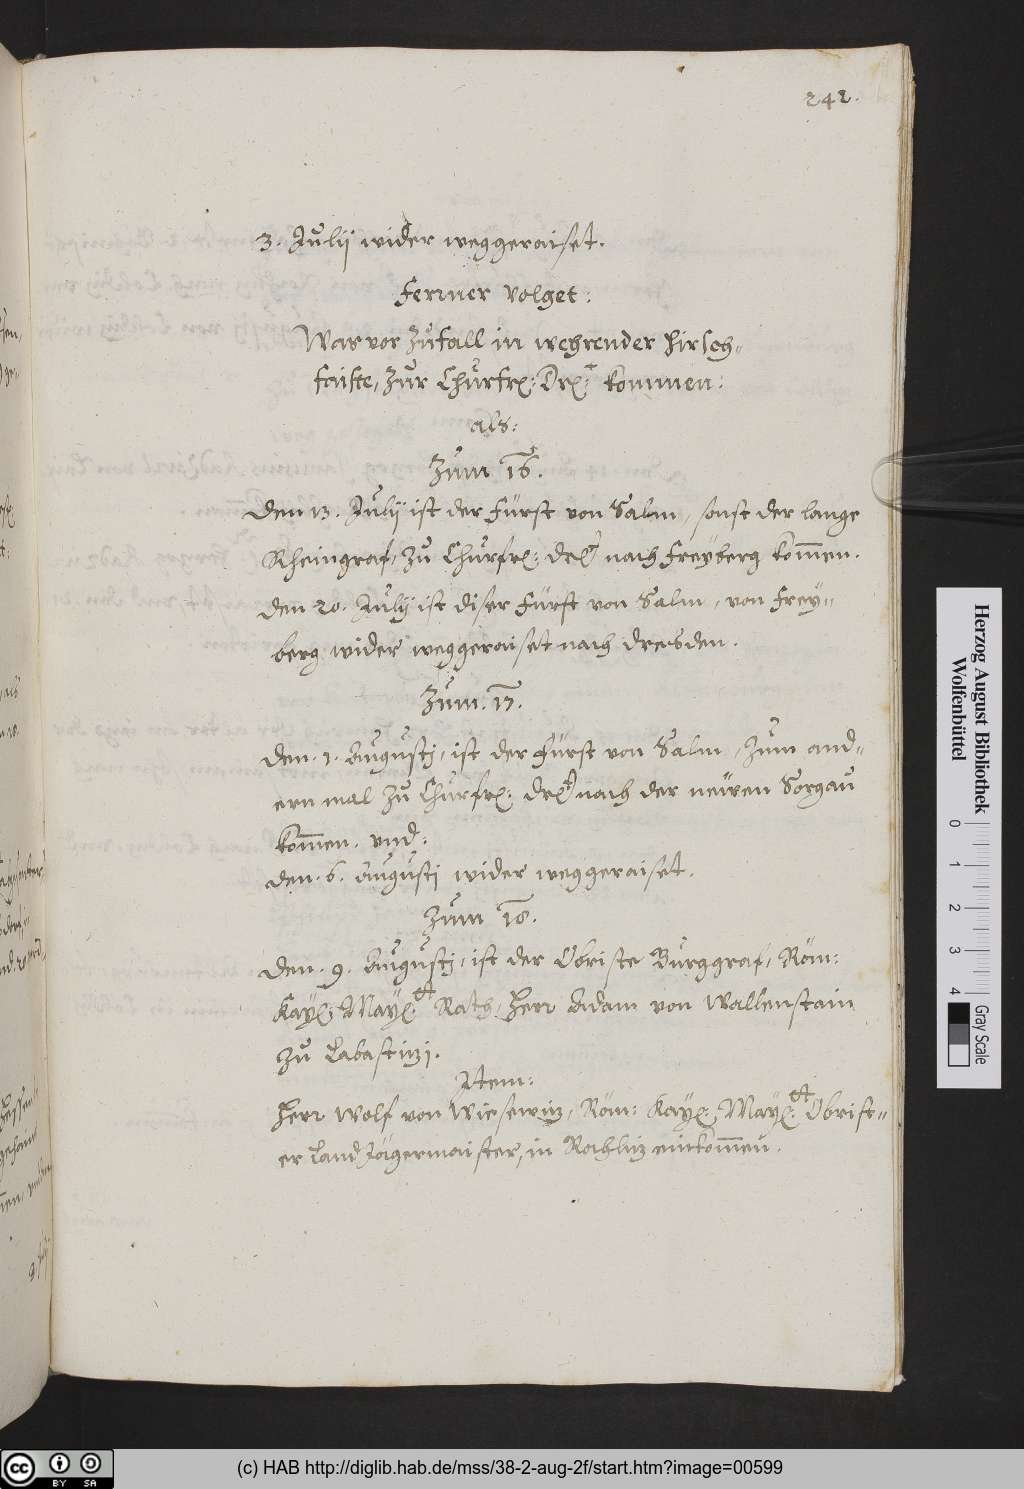 242.
3. Julij wider weggeraiset.
Ferrner volget:
Was vor Zufall in wehrender Hirsch-
faiste, Zur Churfr: Dr: kommen:
als:
Zum 16.
Den 13. Julij ist der Fürst von Salm, sonst der lange
Rheingraf, Zu Churfr: Dr: nach Freyberg kom̄en.
den 20. Julij ist diser Fürst von Salm, von Frey-
berg wider weggeraiset nach Dresden.
Zum. 17.
Den. 1. Augustj, ist der Fürst von Salm, Zum and-
ern mal Zu Churfr: Dr: nach der neüen Sorgau
kom̄en. vnd:
den. 6. Augustj wider weggeraiset.
Zum 18.
Den. 9. Augustj, ist der Obriste Burggraf, Röm:
Kay: May: tt Rath, Herr Adam von Wallenstain
Zu Labastizi.
Item:
Herr Wolf von Wiesewiz, Röm: Kay: May: tt Obrist-
er Land Jägermaister, in Rochliz einkom̄en.
Herzog August Bibliothek
Wolfenbüttel
0 1 2 3 4
Gray Scale
cc BY SA
(c) HAB http://diglib.hab.de/mss/38-2-aug-2f/start.htm?image=00599